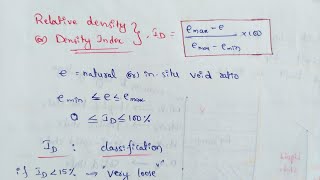 Relative density
(or) Density Index } . I_D = (e_max - e) / (e_max - e_min) × 100
e = natural (or) in-situ void ratio
e_min ≤ e ≤ e_max
0 ≤ I_D ≤ 100%
I_D : classification
if I_D < 15% → "very loose"